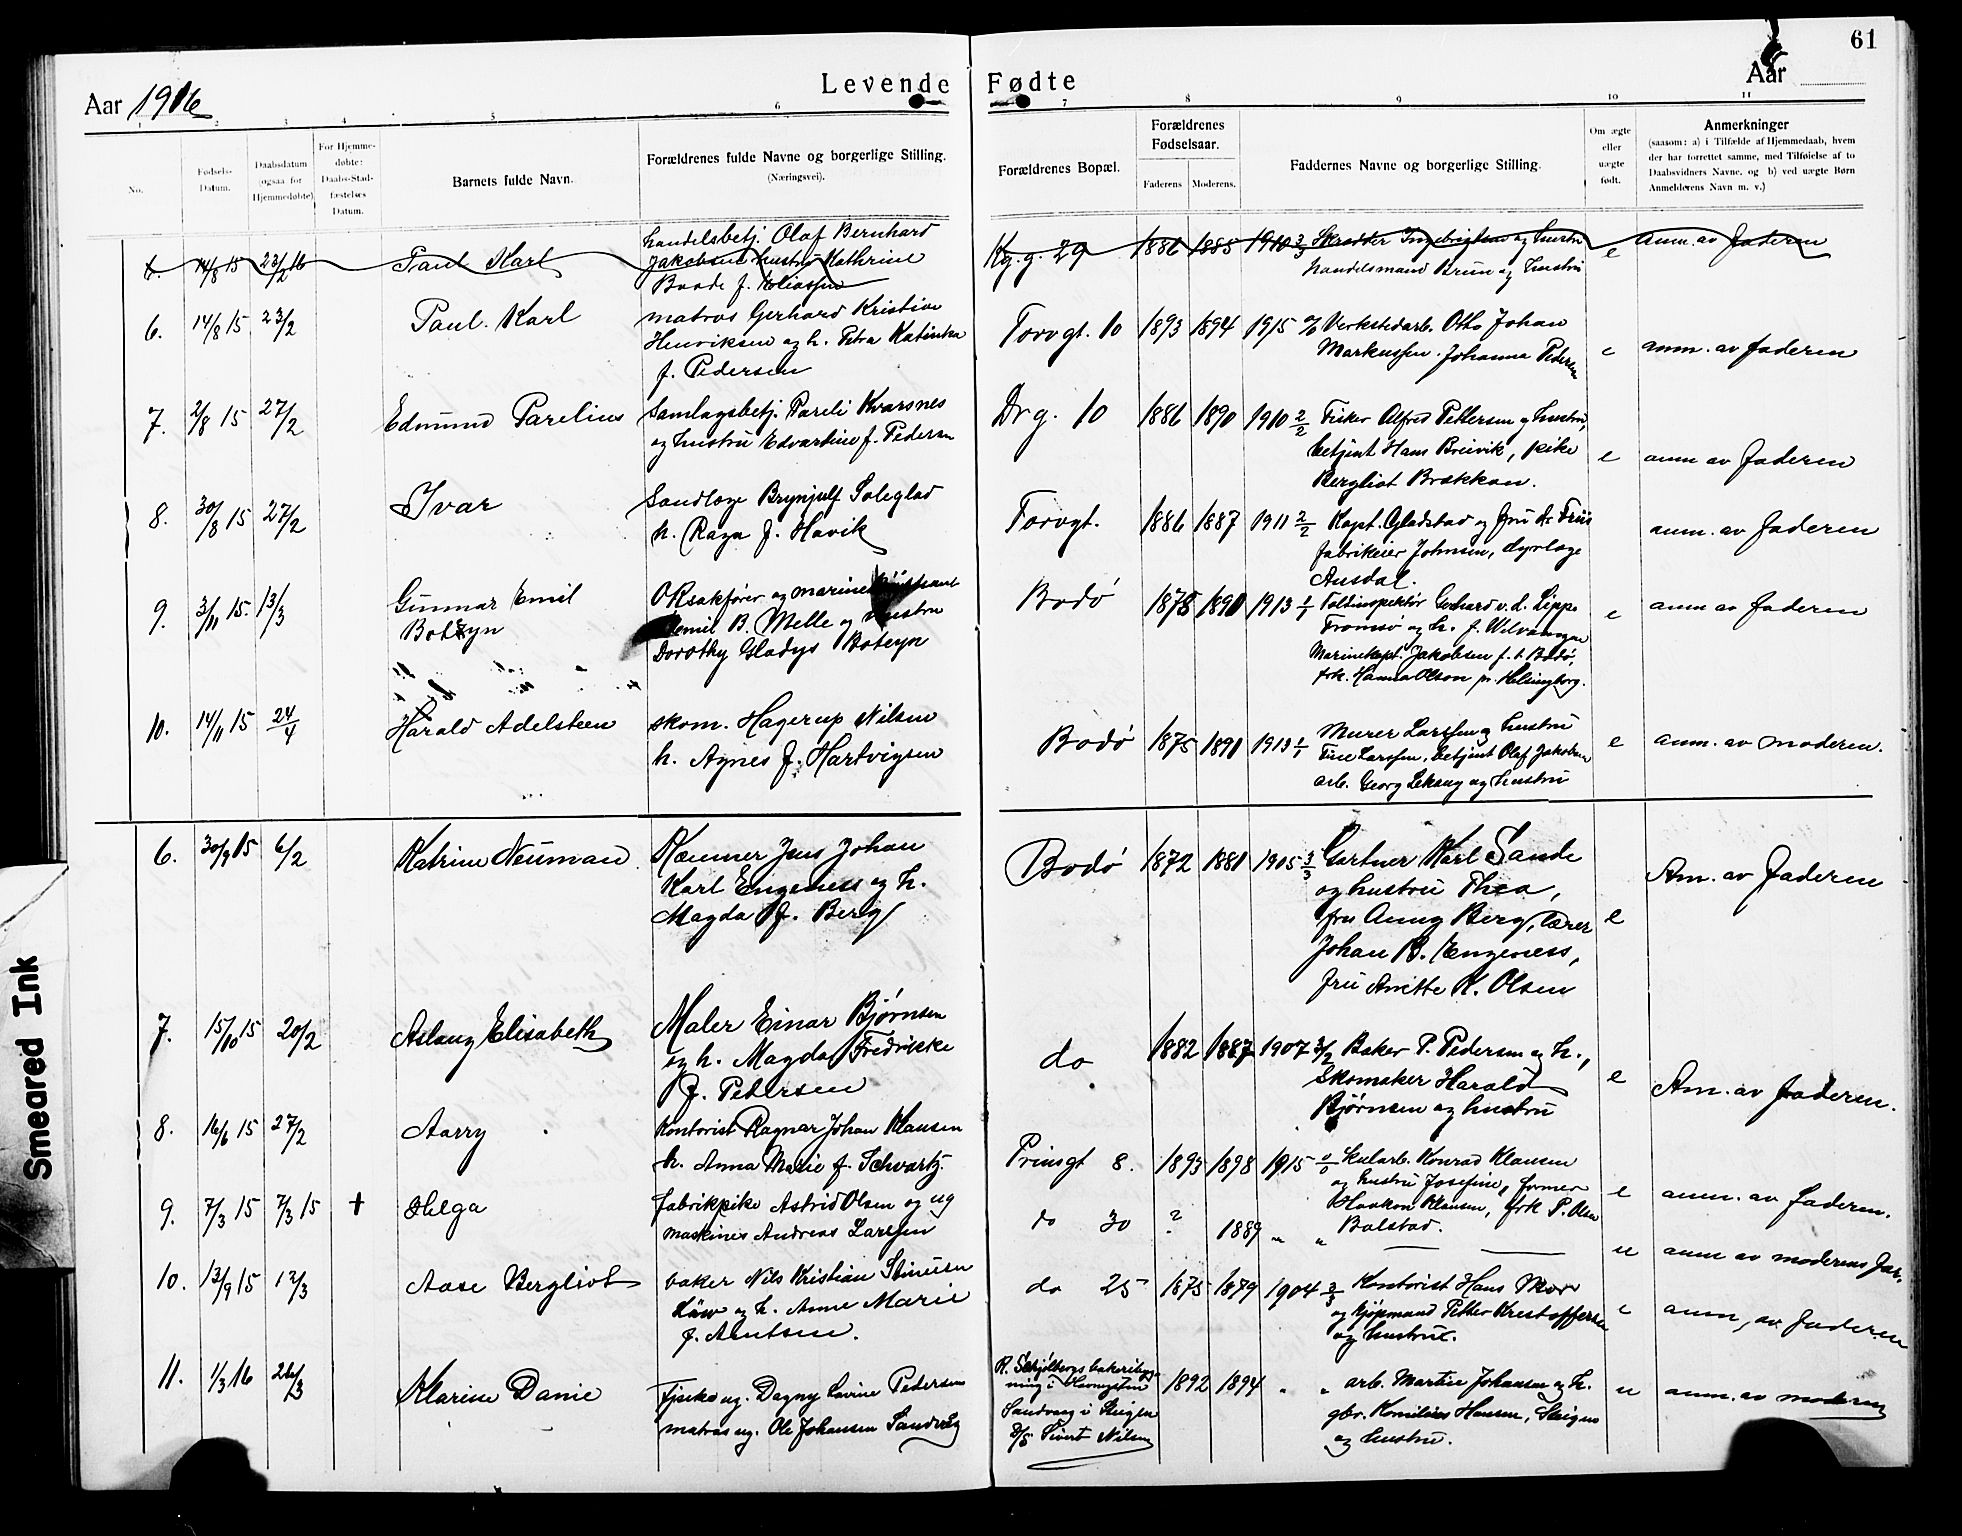 61
Aar 1916
Levende Fødte
Aar
1 2 3 4 5 6 7 8 9 10 11
No.
Fødsels-
Datum.
Daabsdatum
(ogsaa for
Hjemmedøbte)
For Hjemme-
døbte:
Daabs-Stad-
fæstelses
Datum.
Barnets fulde Navn.
Forældrenes fulde Navne og borgerlige Stilling.
(Næringsvei).
Forældrenes Bopæl.
Forældrenes
Fødselsaar.
Faderens Moderens.
Faddernes Navne og borgerlige Stilling.
Om ægte
eller
uægte
født.
Anmerkninger
(saasom: a) i Tilfælde af Hjemmedaab, hvem
der har forrettet samme, med Tilføielse af to
Daabsvidners Navne. og b) ved uægte Børn
Anmelderens Navn m. v.)
6. 14/8 15 23/2 16 Paul Karl
handelsbetj. Olaf Bernhard
Jakobsen hustru Kathrine
Baade f. Eliassen
Kg. g. 29 1886 1885 1910 3/3 Skrædder Ingebrigtsen og hustru
handelsmand Brun og hustru
e anm. av faderen
6. 14/8 15 23/2 Paul Karl
matros Gerhard Kristian
Henriksen og h. Petra Katinka
f. Pedersen
Torvgt. 10 1893 1894 1915 Verkstedarb. Otto Johan
Markussen. Johanna Pedersen
e anm. av faderen
7. 2/8 15 27/2 Edmund Parelius
Samlagsbetj. Pareli Kvarsnes
og hustru Edvardine f. Pedersen
Dr g. 10 1886 1890 1910 2/2 Fisker Alfred Pettersen og hustru,
betjent Hans Breivik, pike
Bergliot Brækkan.
e anm av faderen
8. 30/8 15 27/2 Ivar
Tandlæge Brynjulf Soleglad
h. Raga f. Havik
Torvgt. 1886 1887 1911 2/2 Kapt. Gladstad og fru dr Friis
fabrikeier Johnsen, dyrlæge
Ausdal.
anm. av faderen
9. 3/11 15. 13/3 Gunnar Emil
Boteyn
ORsakfører og marine
Emil B. Melle og hustru
Dorothy Gladys Boteyn
Bodø 1878 1890 1913 1/1 Toldinspektør Gerhard v. d. Lippe
Tromsø og h. f.
Marinekapt. Jakobsen f. t. Bodø,
frk. Hanna Olson pr. Helsingborg.
e anm av faderen
10. 14/11 15 24/4 Harald Adelsteen
skom. Hagerup Nilsen
h. Agnes f. Hartvigsen
Bodø 1875 1891 1913 1/1 Murer Larssen og hustru
Tine Larssen, betjent Olaf Jakobsen
arb. Georg Lekang og hustru
e anm. av moderen.
6. 30/9 15 6/2 Katrine Neuman
Kæmner Jens Johan
Karl Engeness og h.
Magda f. Berg
Bodø 1872 1881 1905 3/3 Gartner Karl Sande
og hustru Thea,
fru Anny Berg, lærer
Johan B. Engeness,
fru Anitte K. Olsen
e Am. av faderen
7. 15/10 15 20/2 Aslaug Elisabeth
Maler Einar Bjørnsen
og h. Magda Fredrikke
f. Petersen
do 1882 1887 1907 3/2 Baker P. Pedersen og h.,
Skomaker Harald
Bjørnsen og hustru
e Am. av faderen.
8. 16/6 15 27/2 Aarry
Kontorist Ragnar Johan Klausen
h. Anna Marie f. Schvartz.
Prinsgt 8. 1893 1898 1915 0/0 Kularb. Konrad Klausen
og hustru Josefine, former
Haakon Klausen, frk P. Olsen
Balstad.
e anm. av faderen.
9. 7/3 15 7/3 15 + Helga
fabrikpike Astrid Olsen og ug
maskines Andreas Larssen
do 30 ? 1889 " "
u anm av moderens far.
10. 13/9 15 12/3 Aase Bergliot
baker Nils Kristian Stinusen
Løw og h. Anne Marie
f. Arntsen.
do 25 1875 1879 1904 3/3 Kontorist Hans Moer
og kjøpmand Petter Kristoffersen
og hustru.
e anm, av faderen
11. 1/3 16 26/3 Klarine Danie
Tjenko ug. Dagny Lovine Pedersen
matros ug. Ole Johansen Sandvåg
R. Schjølbergs bakeribyg-
ning i Havnegaten
Sandvaag i Steigen
Sivert Nilsen
1892 1894 " " arb. Martin Johansen og h.
gbr. Kornelius Hansen, Steigen
og hustru.
u anm. av moderen
Smeared Ink